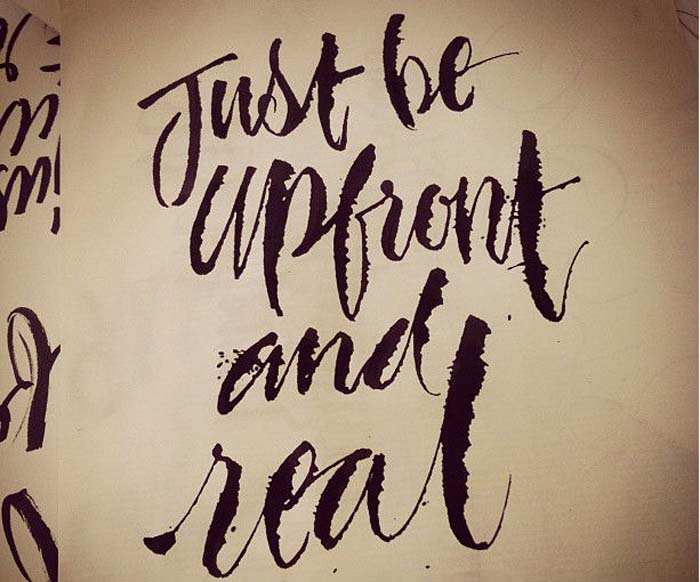 Just be
upfront
and
real